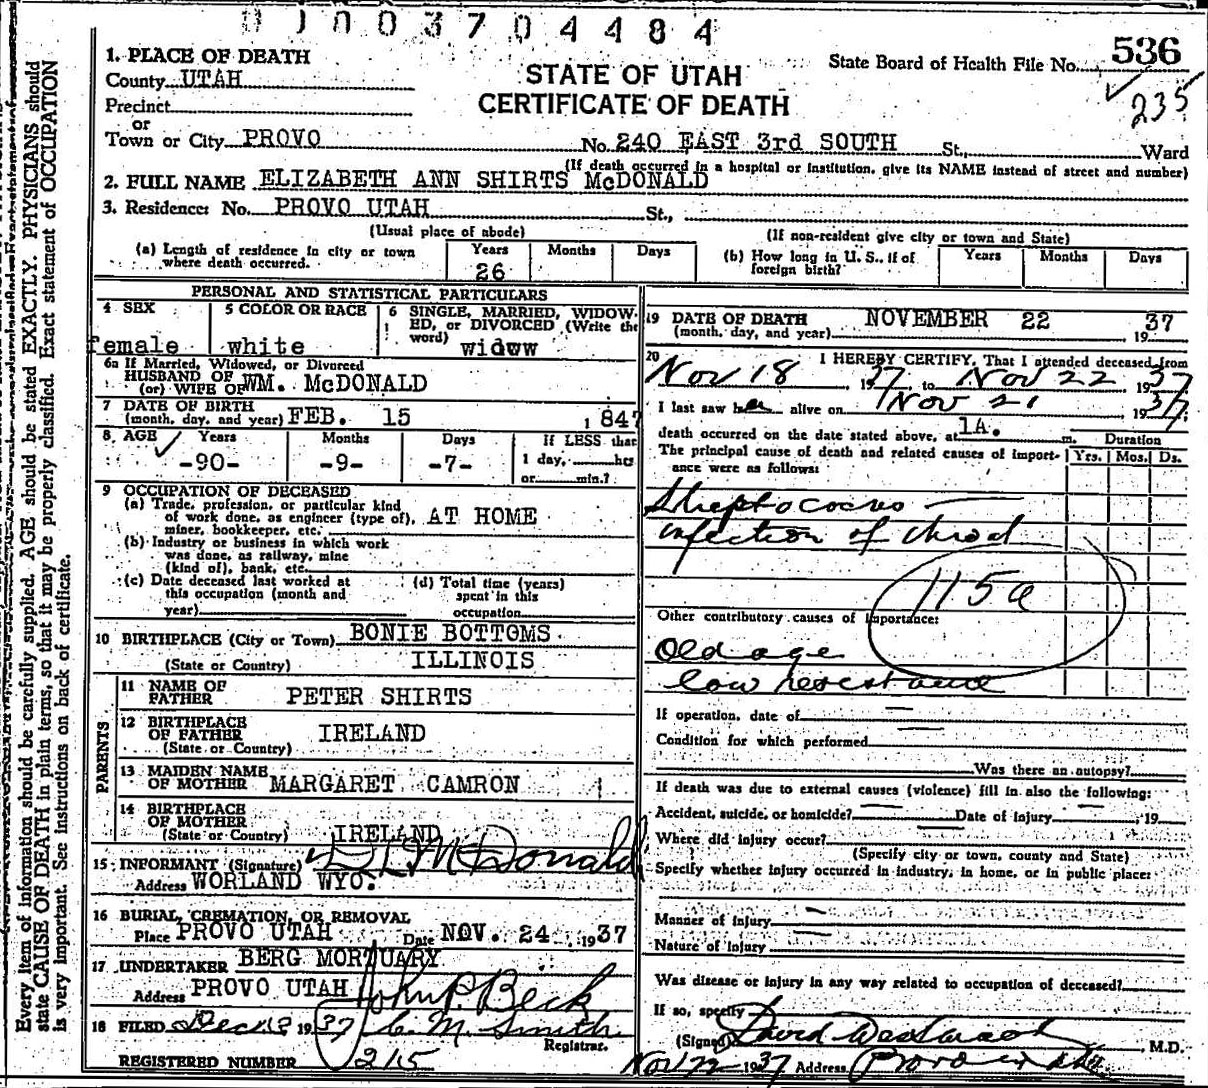 0 1 0 0 3 7 0 4 4 8 4
1. PLACE OF DEATH
County UTAH
STATE OF UTAH
State Board of Health File No. 536
235
CERTIFICATE OF DEATH
Precinct
or
Town or City PROVO No. 240 EAST 3rd SOUTH St., Ward
(If death occurred in a hospital or institution, give its NAME instead of street and number)
2. FULL NAME ELIZABETH ANN SHIRTS McDONALD
3. Residence: No. PROVO UTAH St.,
(Usual place of abode) (If non-resident give city or town and State)
(a) Length of residence in city or town where death occurred. Years 26 Months Days
(b) How long in U. S., if of foreign birth? Years Months Days
PERSONAL AND STATISTICAL PARTICULARS
4 SEX female
5 COLOR OR RACE white
6 SINGLE, MARRIED, WIDOWED, or DIVORCED (Write the word) widow
6a If Married, Widowed, or Divorced
HUSBAND OF
(or) WIFE OF WM. McDONALD
7 DATE OF BIRTH
(month, day, and year) FEB. 15 1847
8 AGE Years Months Days If LESS than
-90- -9- -7- 1 day, hrs
or min.?
9 OCCUPATION OF DECEASED
(a) Trade, profession, or particular kind
of work done, as engineer (type of), AT HOME
miner, bookkeeper, etc.
(b) Industry or business in which work
was done, as railway, mine
(kind of), bank, etc.
(c) Date deceased last worked at
this occupation (month and
year)
(d) Total time (years)
spent in this
occupation
10 BIRTHPLACE (City or Town) BONIE BOTTOMS
(State or Country) ILLINOIS
PARENTS
11 NAME OF
FATHER PETER SHIRTS
12 BIRTHPLACE
OF FATHER IRELAND
(State or Country)
13 MAIDEN NAME
OF MOTHER MARGARET CAMRON
14 BIRTHPLACE
OF MOTHER
(State or Country) IRELAND
15 INFORMANT (Signature) McDonald
Address WORLAND WYO.
16 BURIAL, CREMATION, OR REMOVAL
Place PROVO UTAH Date NOV. 24 1937
17 UNDERTAKER BERG MORTUARY
Address PROVO UTAH John P. Beck
18 FILED Dec 1937 C. M. Smith
Registrar.
REGISTERED NUMBER 215
19 DATE OF DEATH NOVEMBER 22 37
(month, day, and year) 19
20 I HEREBY CERTIFY, That I attended deceased from
Nov 18 1937, to Nov 22 1937
I last saw her alive on Nov 21 1937
death occurred on the date stated above, at 1A. m. Duration
The principal cause of death and related causes of importance were as follows: Yrs. Mos. Ds.
Streptococus
infection of throat
115a
Other contributory causes of importance:
Old age
low resistance
If operation, date of
Condition for which performed
Was there an autopsy?
If death was due to external causes (violence) fill in also the following:
Accident, suicide, or homicide? Date of injury , 19
Where did injury occur?
(Specify city or town, county and State)
Specify whether injury occurred in industry, in home, or in public place:
Manner of injury
Nature of injury
Was disease or injury in any way related to occupation of deceased?
If so, specify
(Signed) David Westwood M.D.
Nov 22 1937 Address Provo Utah
Every item of information should be carefully supplied. AGE should be stated EXACTLY. PHYSICIANS should
state CAUSE OF DEATH in plain terms, so that it may be properly classified. Exact statement of OCCUPATION
is very important. See Instructions on back of certificate.